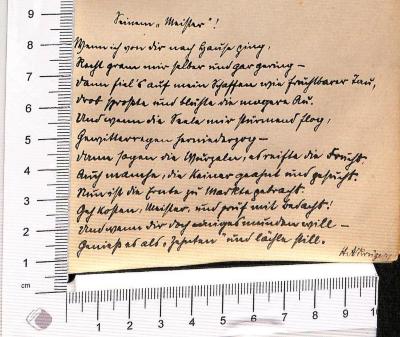 Seinem „Meister“!
Wenn ich von dir nach Hause ging,
Recht gram mir selber und gar gering –
Dann fiel's auf mein Schaffen wie fruchtbarer Tau,
Drob sproßte und blühte die magere Au.
Und wenn die Seele mir stürmend flog,
Gewitterregen herniederzog –
Dann sogen die Wurzeln, es reifte die Frucht.
Auch manche, die Keiner geahnt und gesucht.
Nun ist die Ernte zu Markte gebracht.
Geh kosten, Meister, und prüf mit Bedacht!
Und wenn dir doch einiges munden will –
Genieß es als „Zehnten“ und lächle still.
9
8
7
6
5
4
3
2
1
cm
1
2
3
4
5
6
7
8
9
10